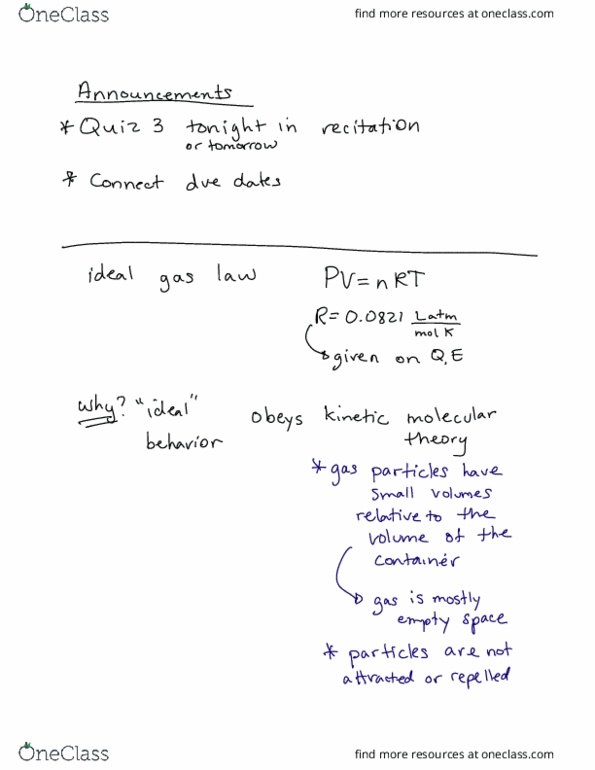 OneClass
find more resources at oneclass.com
Announcements
* Quiz 3 tonight in recitation
or tomorrow
* Connect due dates
ideal gas law PV=nRT
R=0.0821 Latm
mol K
given on Q,E
why? "ideal" obeys kinetic molecular
behavior theory
* gas particles have
small volumes
relative to the
volume of the
container
gas is mostly
empty space
* particles are not
attracted or repelled
OneClass
find more resources at oneclass.com